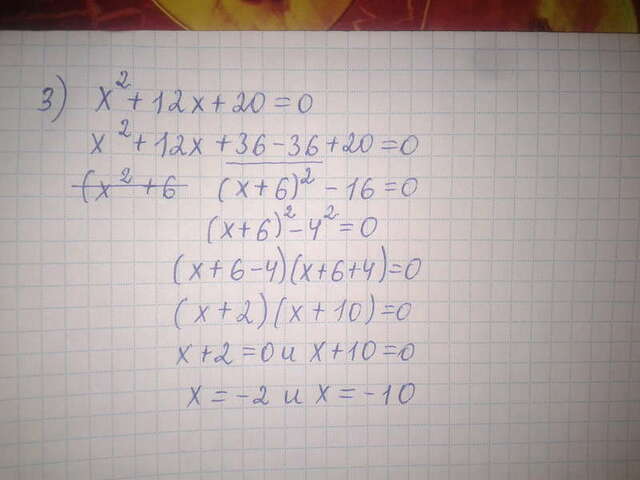 3) x² + 12x + 20 = 0
x² + 12x + 36 - 36 + 20 = 0
(x² + 6 (x+6)² - 16 = 0
(x+6)² - 4² = 0
(x+6-4)(x+6+4)=0
(x+2)(x+10)=0
x+2=0 и x+10=0
x = -2 и x = -10